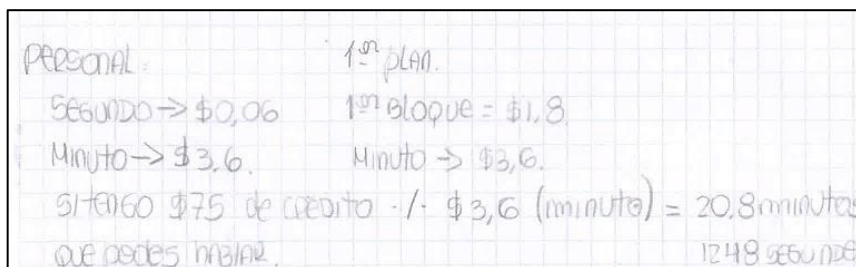 PERSONAL: 1er PLAN.
SEGUNDO → $0,06 1er BLOQUE = $1,8.
MINUTO → $3,6. MINUTO → $3,6.
SI TENGO $75 de CREDITO ·/· $3,6 (minuto) = 20,8 minutos
QUE PODES HABLAR. 1248 SEGUNDO